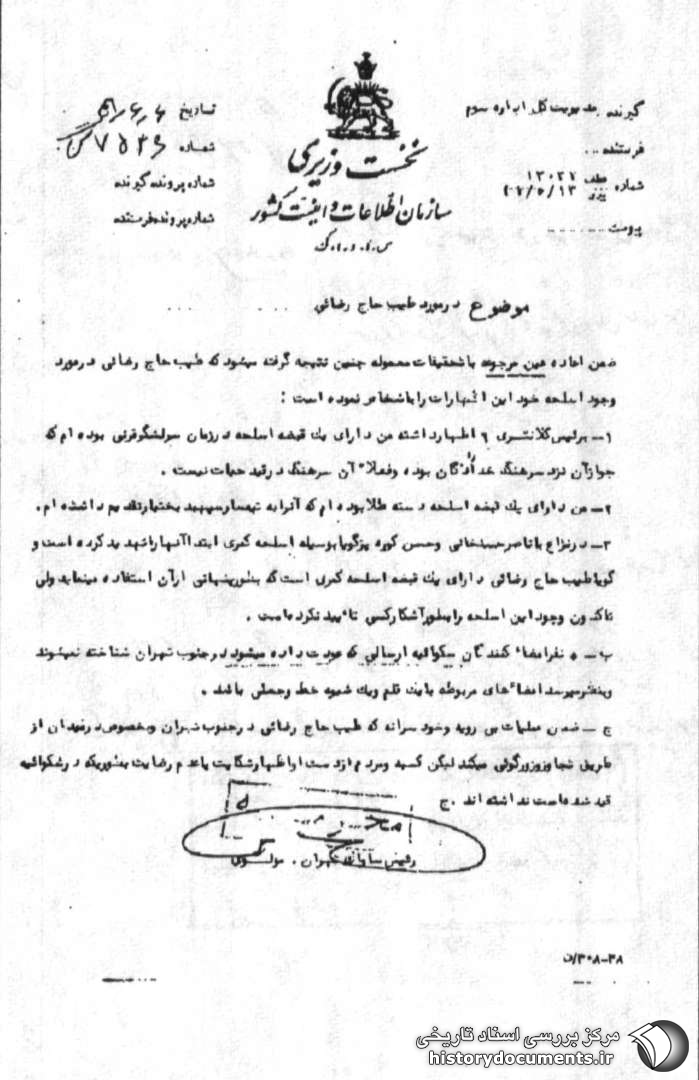 گیرنده مدیریت کل اداره سوم
فرستنده
شماره عطف ۱۳۰۲۲
پیوست
نخست وزیری
سازمان اطلاعات و امنیت کشور
س.ا.و.ا.ک
تاریخ
شماره
شماره پرونده گیرنده
شماره پرونده فرستنده
موضوع در مورد طیب حاج رضائی
ضمن اعاده عین مرجوعه با تحقیقات معموله چنین نتیجه گرفته میشود که طیب حاج رضائی در مورد
وجود اسلحه خود این اظهارات را با شخاص نموده است :
۱ـ برئیس کلانتری ۶ اظهار داشته من دارای یک قبضه اسلحه در زمان سرلشگر قرنی بوده ام که
جواز آن نزد سرهنگ بوده و فعلا آن سرهنگ در قید حیات نیست .
۲ـ من دارای یک قبضه اسلحه دسته طلا بوده ام که آنرا به تیمسار سپهبد بختیار تقدیم داشته ام .
۳ـ در نزاع با ناصر حسنخانی و حسن کوره پز گویا بوسیله اسلحه کمری ابتدا آنها را تهدید کرده است و
گویا طیب حاج رضائی دارای یک قبضه اسلحه کمری است که بطور پنهانی از آن استفاده مینماید ولی
تاکنون وجود این اسلحه را بطور آشکار کسی تائید نکرده است .
ب ـ ۵ نفر امضاء کنندگان شکوائیه ارسالی که عودت داده میشود در جنوب تهران شناخته نمیشوند
و بنظر میرسد امضاء های مربوطه با یک قلم و یک شیوه خط و جعلی باشد .
ج ـ ضمن عملیات بی رویه و خود سرانه که طیب حاج رضائی در جنوب تهران و بخصوص در میدان از
طریق شجا و زورگوئی میکند لیکن کسبه و مردم از دست او اظهار شکایت یا عدم رضایت بطوریکه در شکوائیه
قید شده است نداشته اند . ج
رئیس ساواک تهران . مولوی
۳۰۸-۳۸/ن
مرکز بررسی اسناد تاریخی
historydocuments.ir